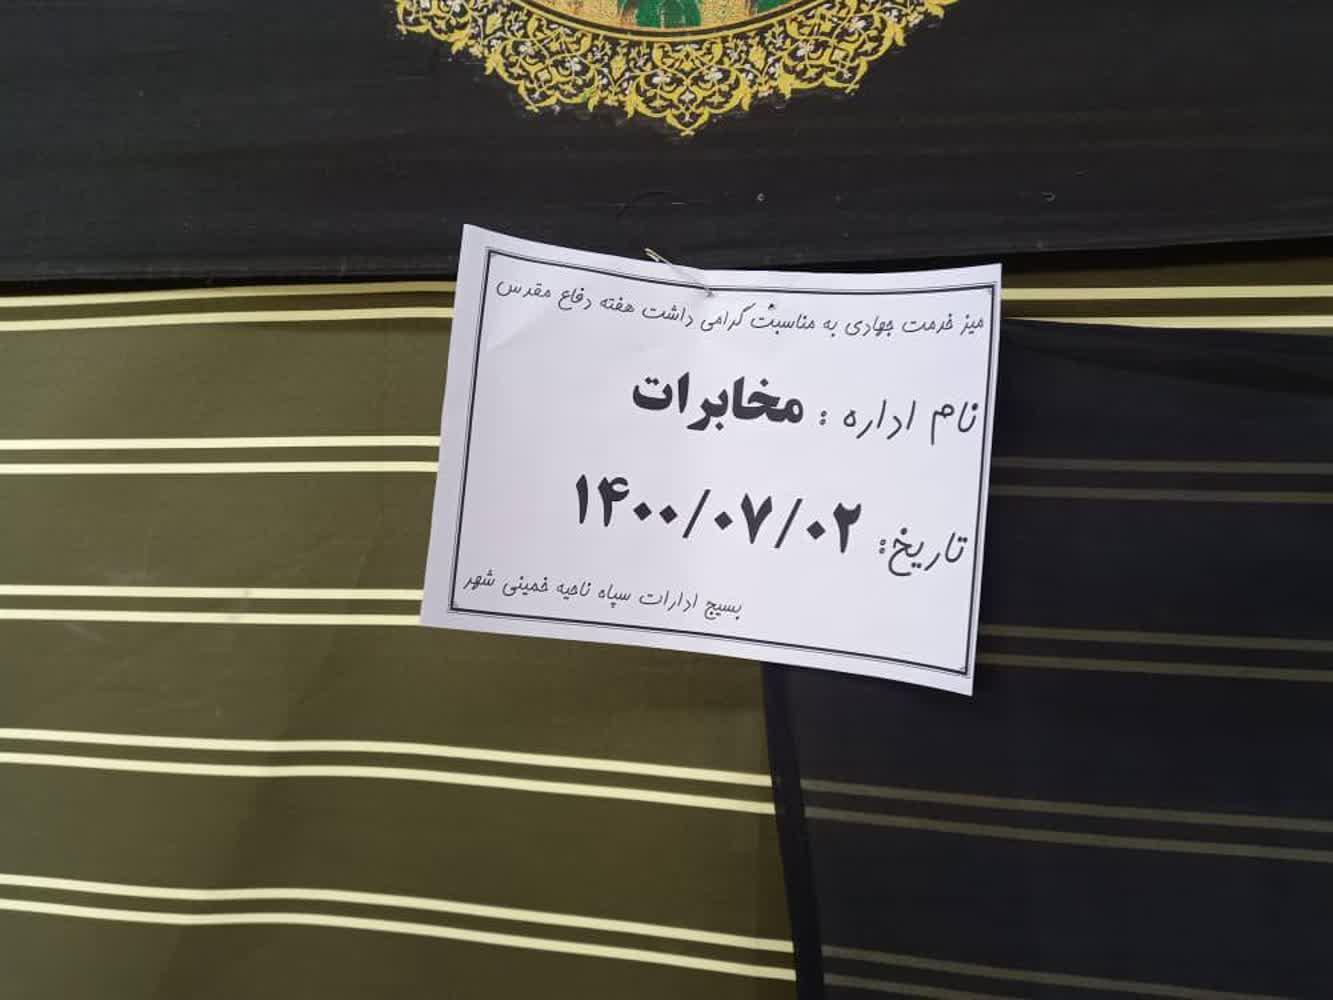 میز خدمت جهادی به مناسبت گرامی داشت هفته دفاع مقدس
نام اداره : مخابرات
تاریخ: ۱۴۰۰/۰۷/۰۲
بسیج ادارات سپاه ناحیه خمینی شهر